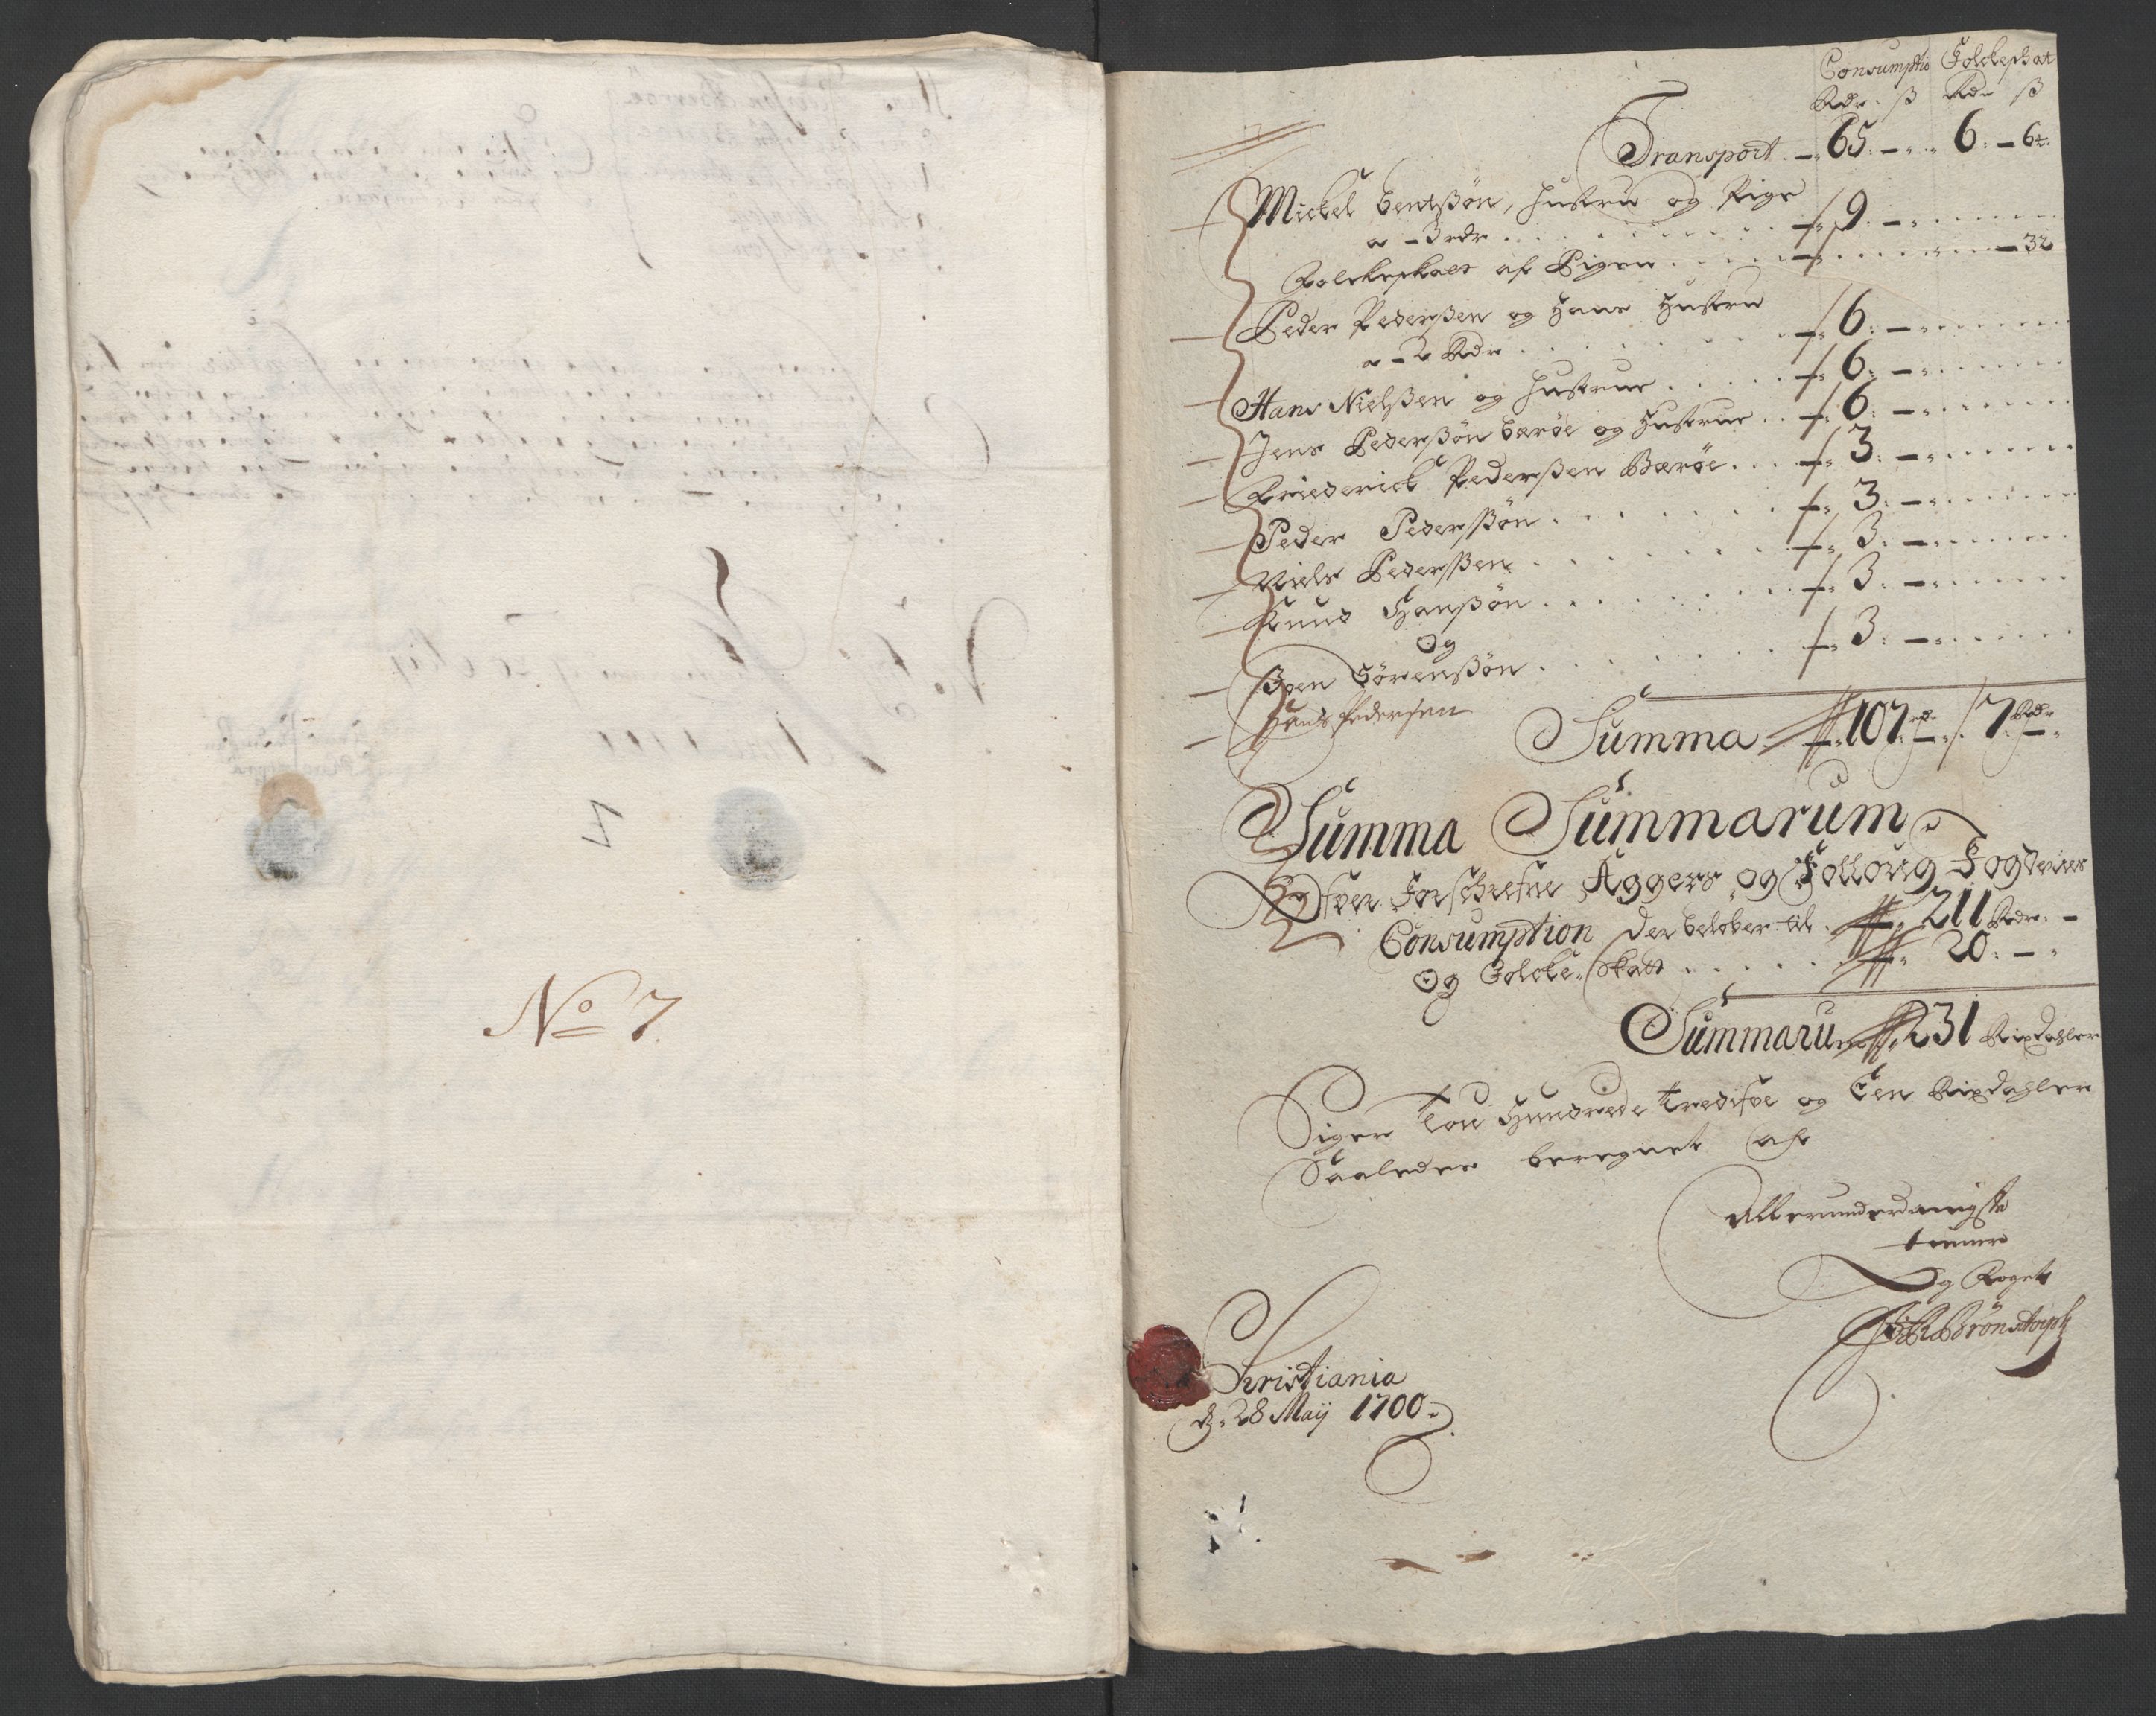 No 7
Consumptio Folckeskat
Rdr. ß Rdr ß
Transport 65 6 64
Mickel Bentßøn, Hustru og Pige
a 3 rdr 9
Folckeskatt af Pigen 32
Peder Pederßen og Hans Hustru
a 3 Rdr 6
Hans Nielßen og Hustrue 6
Jens Pederßøn Bærøe og Hustrue 6
Friederick Pederßen Bærøe 3
Peder Pederßøn 3
Niels Pederßen 3
Knud Hanßøn 3
Og
Sørenßøn 3
Hans Pedersen
Summa 107 rdr 7 Rdr
Summa Summarum
Ofver Forschrefne Aggers og Folloug Fogderies
Consumption der beløber til 211 Rdr
Og Folcke Skatt 20
Summarum 231 Rixdahler
Siger Tou Hundrede Tredifve og Een Rixdahler
Saaledes beregnet af
Allerunderdanigste
tiener
og Foget
Brønstorph
Christiania
d. 28 Maij 1700